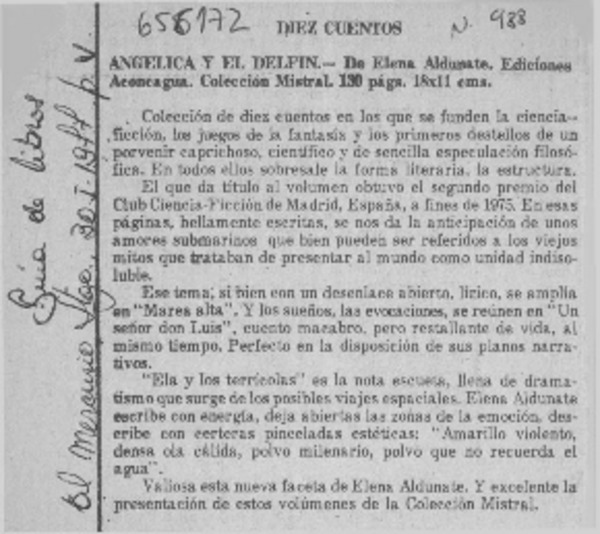 656172
N. 988
DIEZ CUENTOS
ANGELICA Y EL DELFIN.— De Elena Aldunate. Ediciones
Aconcagua. Colección Mistral. 130 págs. 18x11 cms.
Colección de diez cuentos en los que se funden la ciencia-
ficción, los juegos de la fantasía y los primeros destellos de un
porvenir caprichoso, científico y de sencilla especulación filosó-
fica. En todos ellos sobresale la forma literaria, la estructura.
El que da título al volumen obtuvo el segundo premio del
Club Ciencia-Ficción de Madrid, España, a fines de 1975. En esas
páginas, bellamente escritas, se nos da la anticipación de unos
amores submarinos que bien pueden ser referidos a los viejos
mitos que trataban de presentar al mundo como unidad indiso-
luble.
Ese tema, si bien con un desenlace abierto, lírico, se amplía
en "Marea alta". Y los sueños, las evocaciones, se reúnen en "Un
señor don Luis", cuento macabro, pero restallante de vida, al
mismo tiempo. Perfecto en la disposición de sus planos narra-
tivos.
"Ela y los terrícolas" es la nota escueta, llena de drama-
tismo que surge de los posibles viajes espaciales. Elena Aldunate
escribe con energía, deja abiertas las zonas de la emoción, des-
cribe con certeras pinceladas estéticas: "Amarillo violento,
densa ola cálida, polvo milenario, polvo que no recuerda el
agua".
Valiosa esta nueva faceta de Elena Aldunate. Y excelente la
presentación de estos volúmenes de la Colección Mistral.
Guía de libros
El Mercurio, Stgo., 30-I-1977 p. V